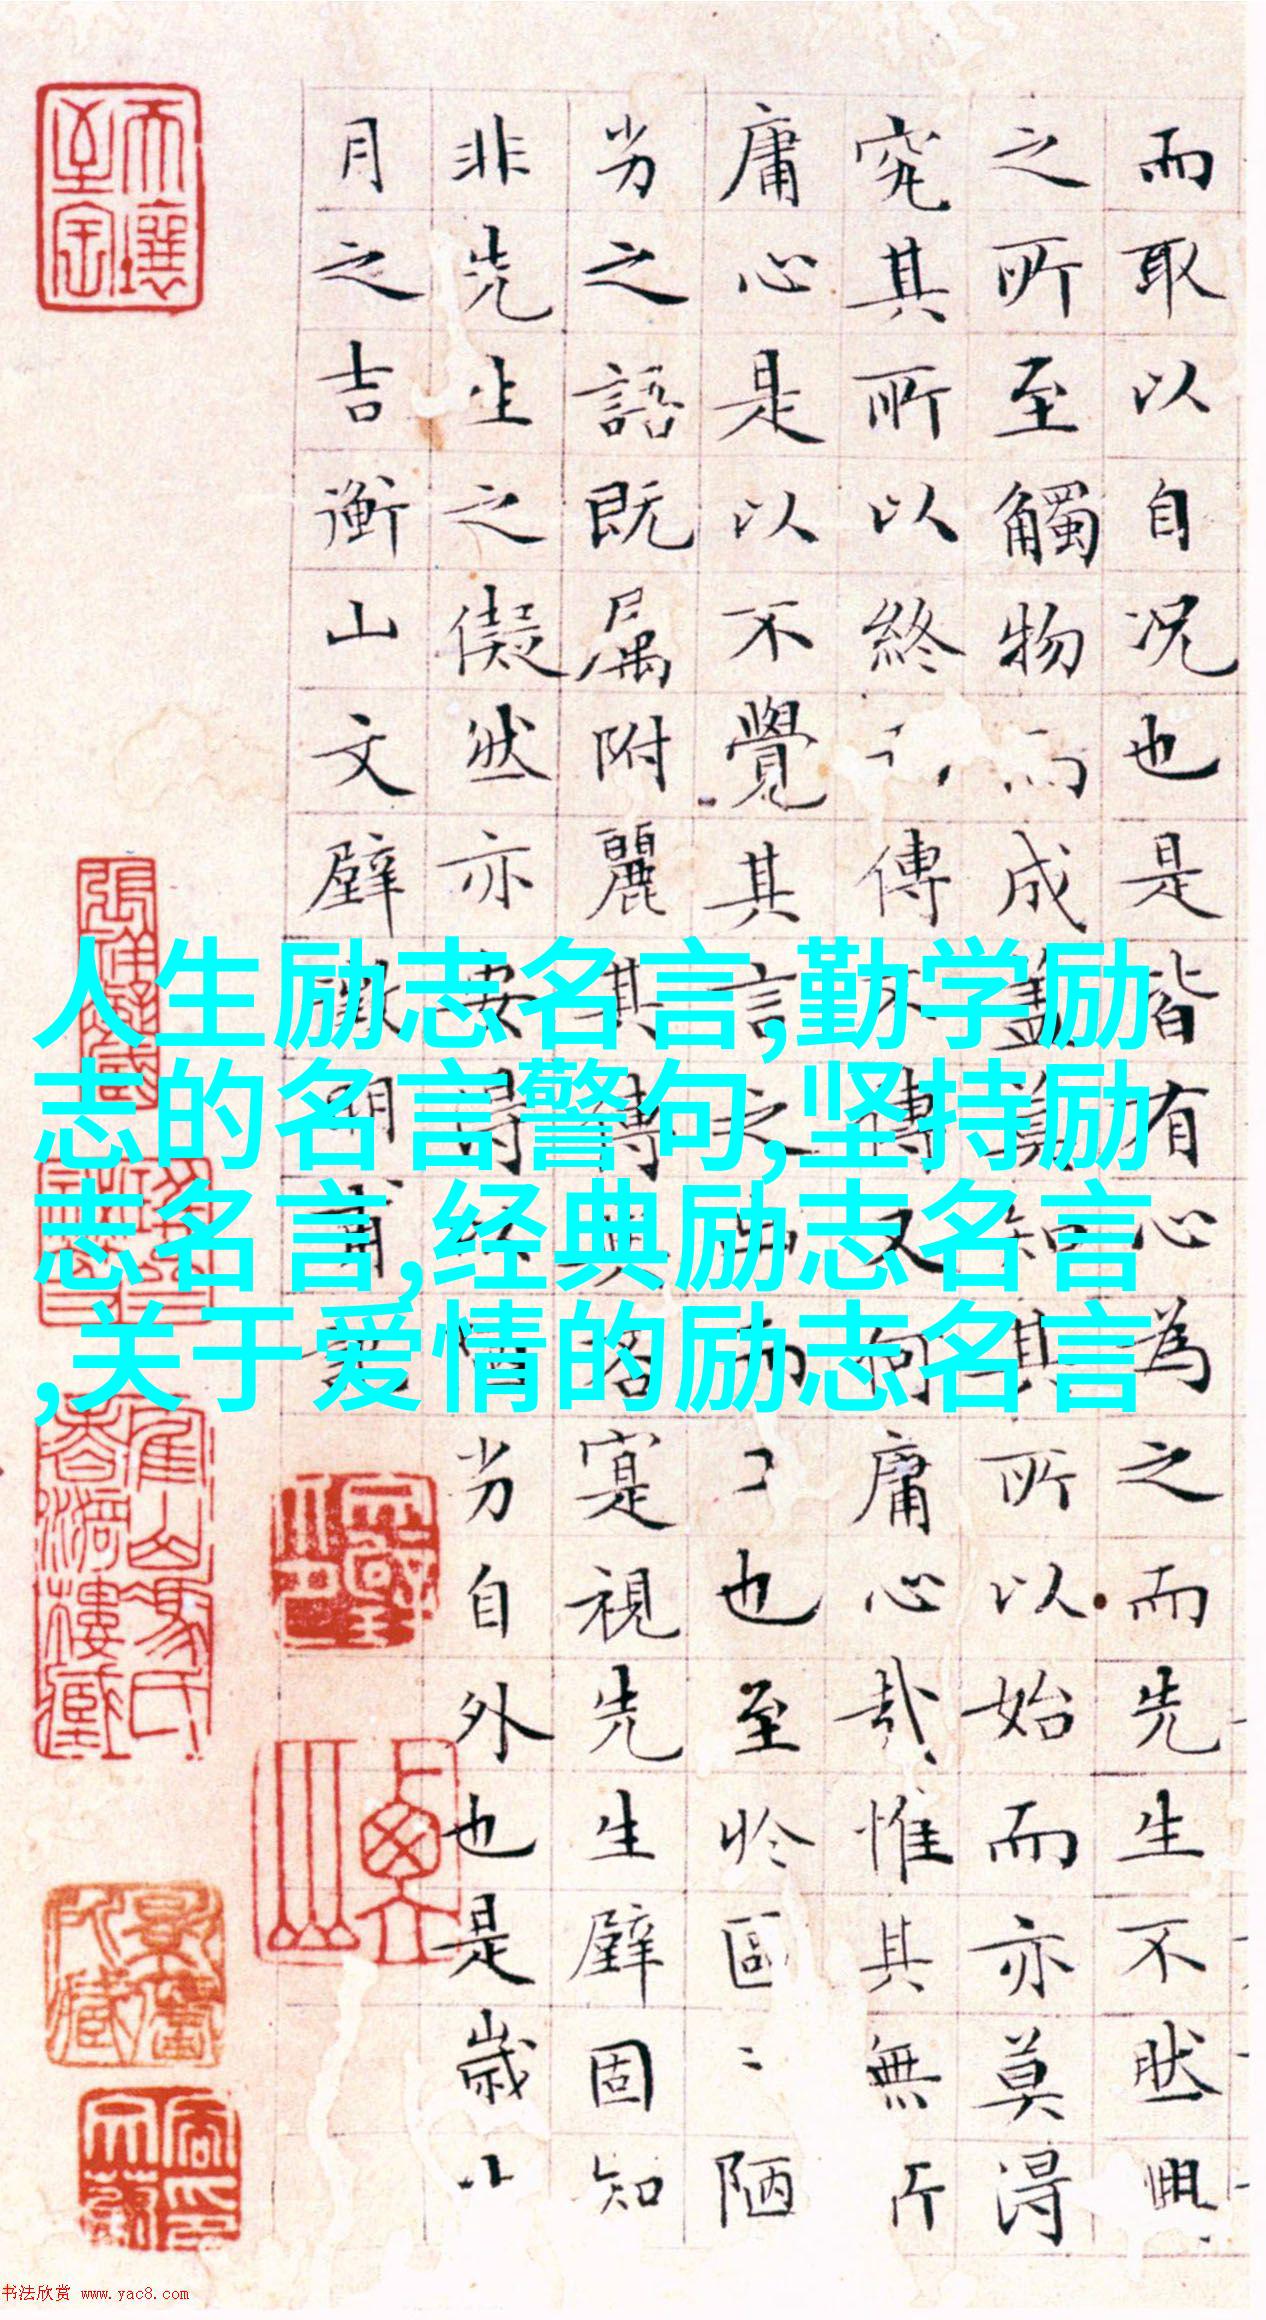 而取以自况也是皆有心為之而先生不然興
之所至觸物而成盖莫知其所以始而亦莫得
究其所以終 傳不傳又何庸心哉惟其無所
庸心是以不覺其言之 而 也至於區〻陋
劣之語既属附麗其傳與否寔視先生璧固知
非先生之儗然亦安得 劣自外也是歳
月之吉衡山文璧徵明甫
人生励志名言,勤学励
志的名言警句,坚持励
志名言,经典励志名言
,关于爱情的励志名言
书法欣赏 www.yac8.com